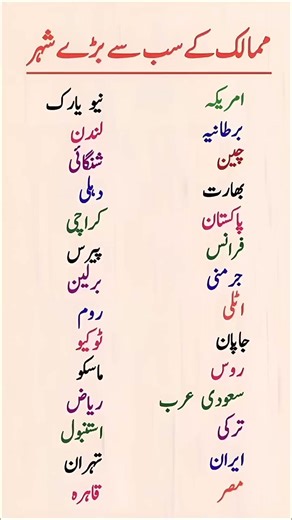 ممالک کے سب سے بڑے شہر
امریکہ نیو یارک
برطانیہ لندن
چین شنگائی
بھارت دہلی
پاکستان کراچی
فرانس پیرس
جرمنی برلین
اٹلی روم
جاپان ٹوکیو
روس ماسکو
سعودی عرب ریاض
ترکی استنبول
ایران تہران
مصر قاہرہ